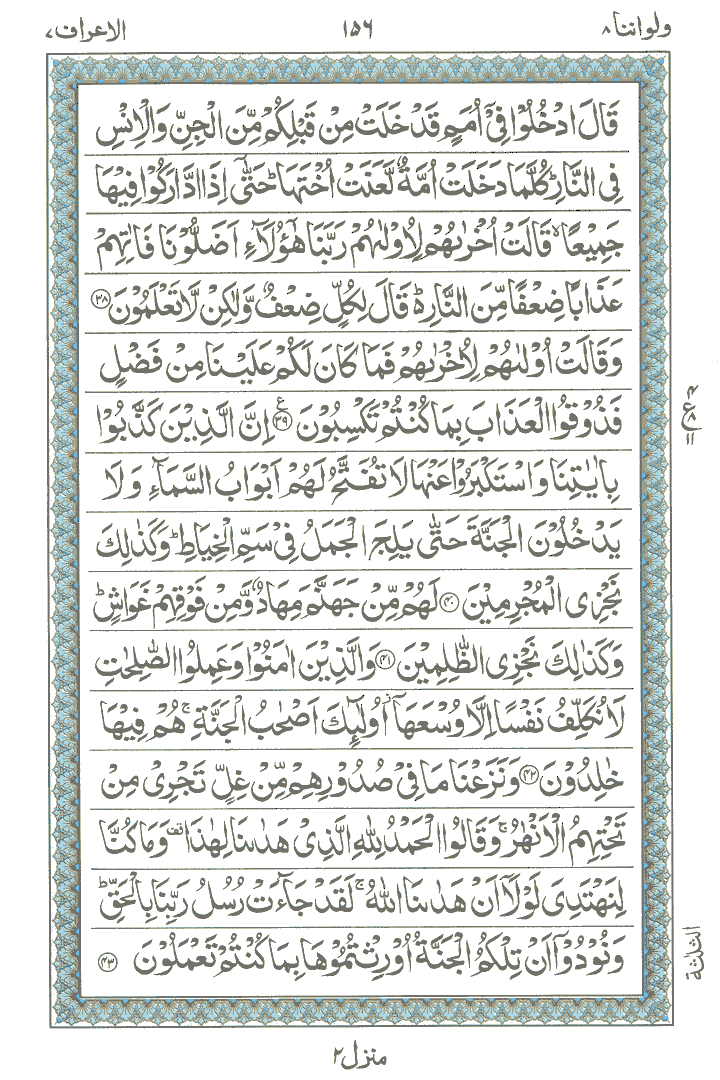 ولواننا ۸ ۱۵۶ الاعراف ۷
قَالَ ادْخُلُوْا فِیْۤ اُمَمٍ قَدْ خَلَتْ مِنْ قَبْلِكُمْ مِّنَ الْجِنِّ وَالْاِنْسِ
فِی النَّارِ ؕ كُلَّمَا دَخَلَتْ اُمَّةٌ لَّعَنَتْ اُخْتَهَا ؕ حَتّٰۤی اِذَا ادَّارَكُوْا فِیْهَا
جَمِیْعًا ۙ قَالَتْ اُخْرٰىهُمْ لِاُوْلٰىهُمْ رَبَّنَا هٰۤؤُلَآءِ اَضَلُّوْنَا فَاٰتِهِمْ
عَذَابًا ضِعْفًا مِّنَ النَّارِ ؕ۬ قَالَ لِكُلٍّ ضِعْفٌ وَّلٰكِنْ لَّا تَعْلَمُوْنَ ﴿۳۸﴾
وَقَالَتْ اُوْلٰىهُمْ لِاُخْرٰىهُمْ فَمَا كَانَ لَكُمْ عَلَیْنَا مِنْ فَضْلٍ
فَذُوْقُوا الْعَذَابَ بِمَا كُنْتُمْ تَكْسِبُوْنَ ﴿۳۹﴾ ع اِنَّ الَّذِیْنَ كَذَّبُوْا
بِاٰیٰتِنَا وَاسْتَكْبَرُوْا عَنْهَا لَا تُفَتَّحُ لَهُمْ اَبْوَابُ السَّمَآءِ وَلَا
یَدْخُلُوْنَ الْجَنَّةَ حَتّٰی یَلِجَ الْجَمَلُ فِیْ سَمِّ الْخِیَاطِ ؕ وَكَذٰلِكَ
نَجْزِی الْمُجْرِمِیْنَ ﴿۴۰﴾ لَهُمْ مِّنْ جَهَنَّمَ مِهَادٌ وَّمِنْ فَوْقِهِمْ غَوَاشٍ ؕ
وَكَذٰلِكَ نَجْزِی الظّٰلِمِیْنَ ﴿۴۱﴾ وَالَّذِیْنَ اٰمَنُوْا وَعَمِلُوا الصّٰلِحٰتِ
لَا نُكَلِّفُ نَفْسًا اِلَّا وُسْعَهَاۤ ؗ اُولٰٓىِٕكَ اَصْحٰبُ الْجَنَّةِ ۚ هُمْ فِیْهَا
خٰلِدُوْنَ ﴿۴۲﴾ وَنَزَعْنَا مَا فِیْ صُدُوْرِهِمْ مِّنْ غِلٍّ تَجْرِیْ مِنْ
تَحْتِهِمُ الْاَنْهٰرُ ۚ وَقَالُوا الْحَمْدُ لِلّٰهِ الَّذِیْ هَدٰىنَا لِهٰذَا ۫ وَمَا كُنَّا
لِنَهْتَدِیَ لَوْلَاۤ اَنْ هَدٰىنَا اللّٰهُ ۚ لَقَدْ جَآءَتْ رُسُلُ رَبِّنَا بِالْحَقِّ ؕ
وَنُوْدُوْۤا اَنْ تِلْكُمُ الْجَنَّةُ اُوْرِثْتُمُوْهَا بِمَا كُنْتُمْ تَعْمَلُوْنَ ﴿۴۳﴾
ع
۱۱
الثلثة
منزل ۲